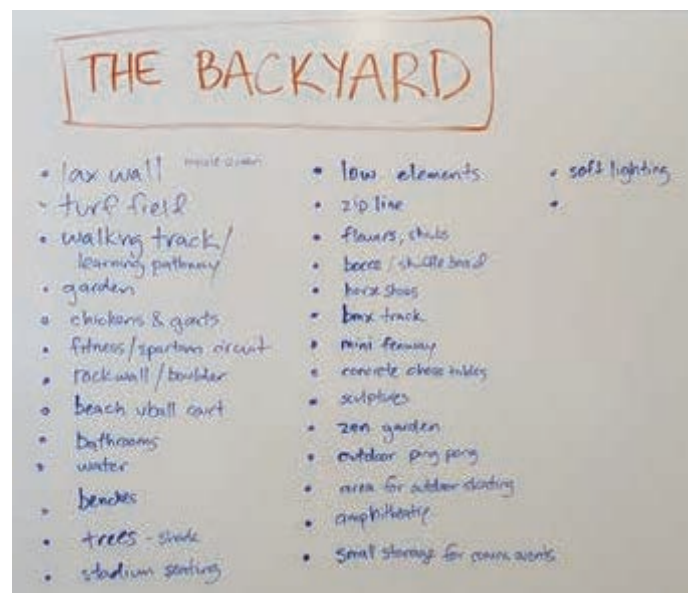 THE BACKYARD
• lax wall movie screen
• turf field
• walking track/
learning pathway
• garden
• chickens & goats
• fitness/spartan circuit
• rockwall/boulder
• beach vball court
• bathrooms
• water
• benches
• trees - shade
• stadium seating
• low elements
• zip line
• flowers, shrubs
• bocce / shuffle board
• horse shoes
• bmx track
• mini fenway
• concrete chess tables
• sculptures
• zen garden
• outdoor ping pong
• area for outdoor skating
• amphitheatre
• small storage for comm. events
• soft lighting
•